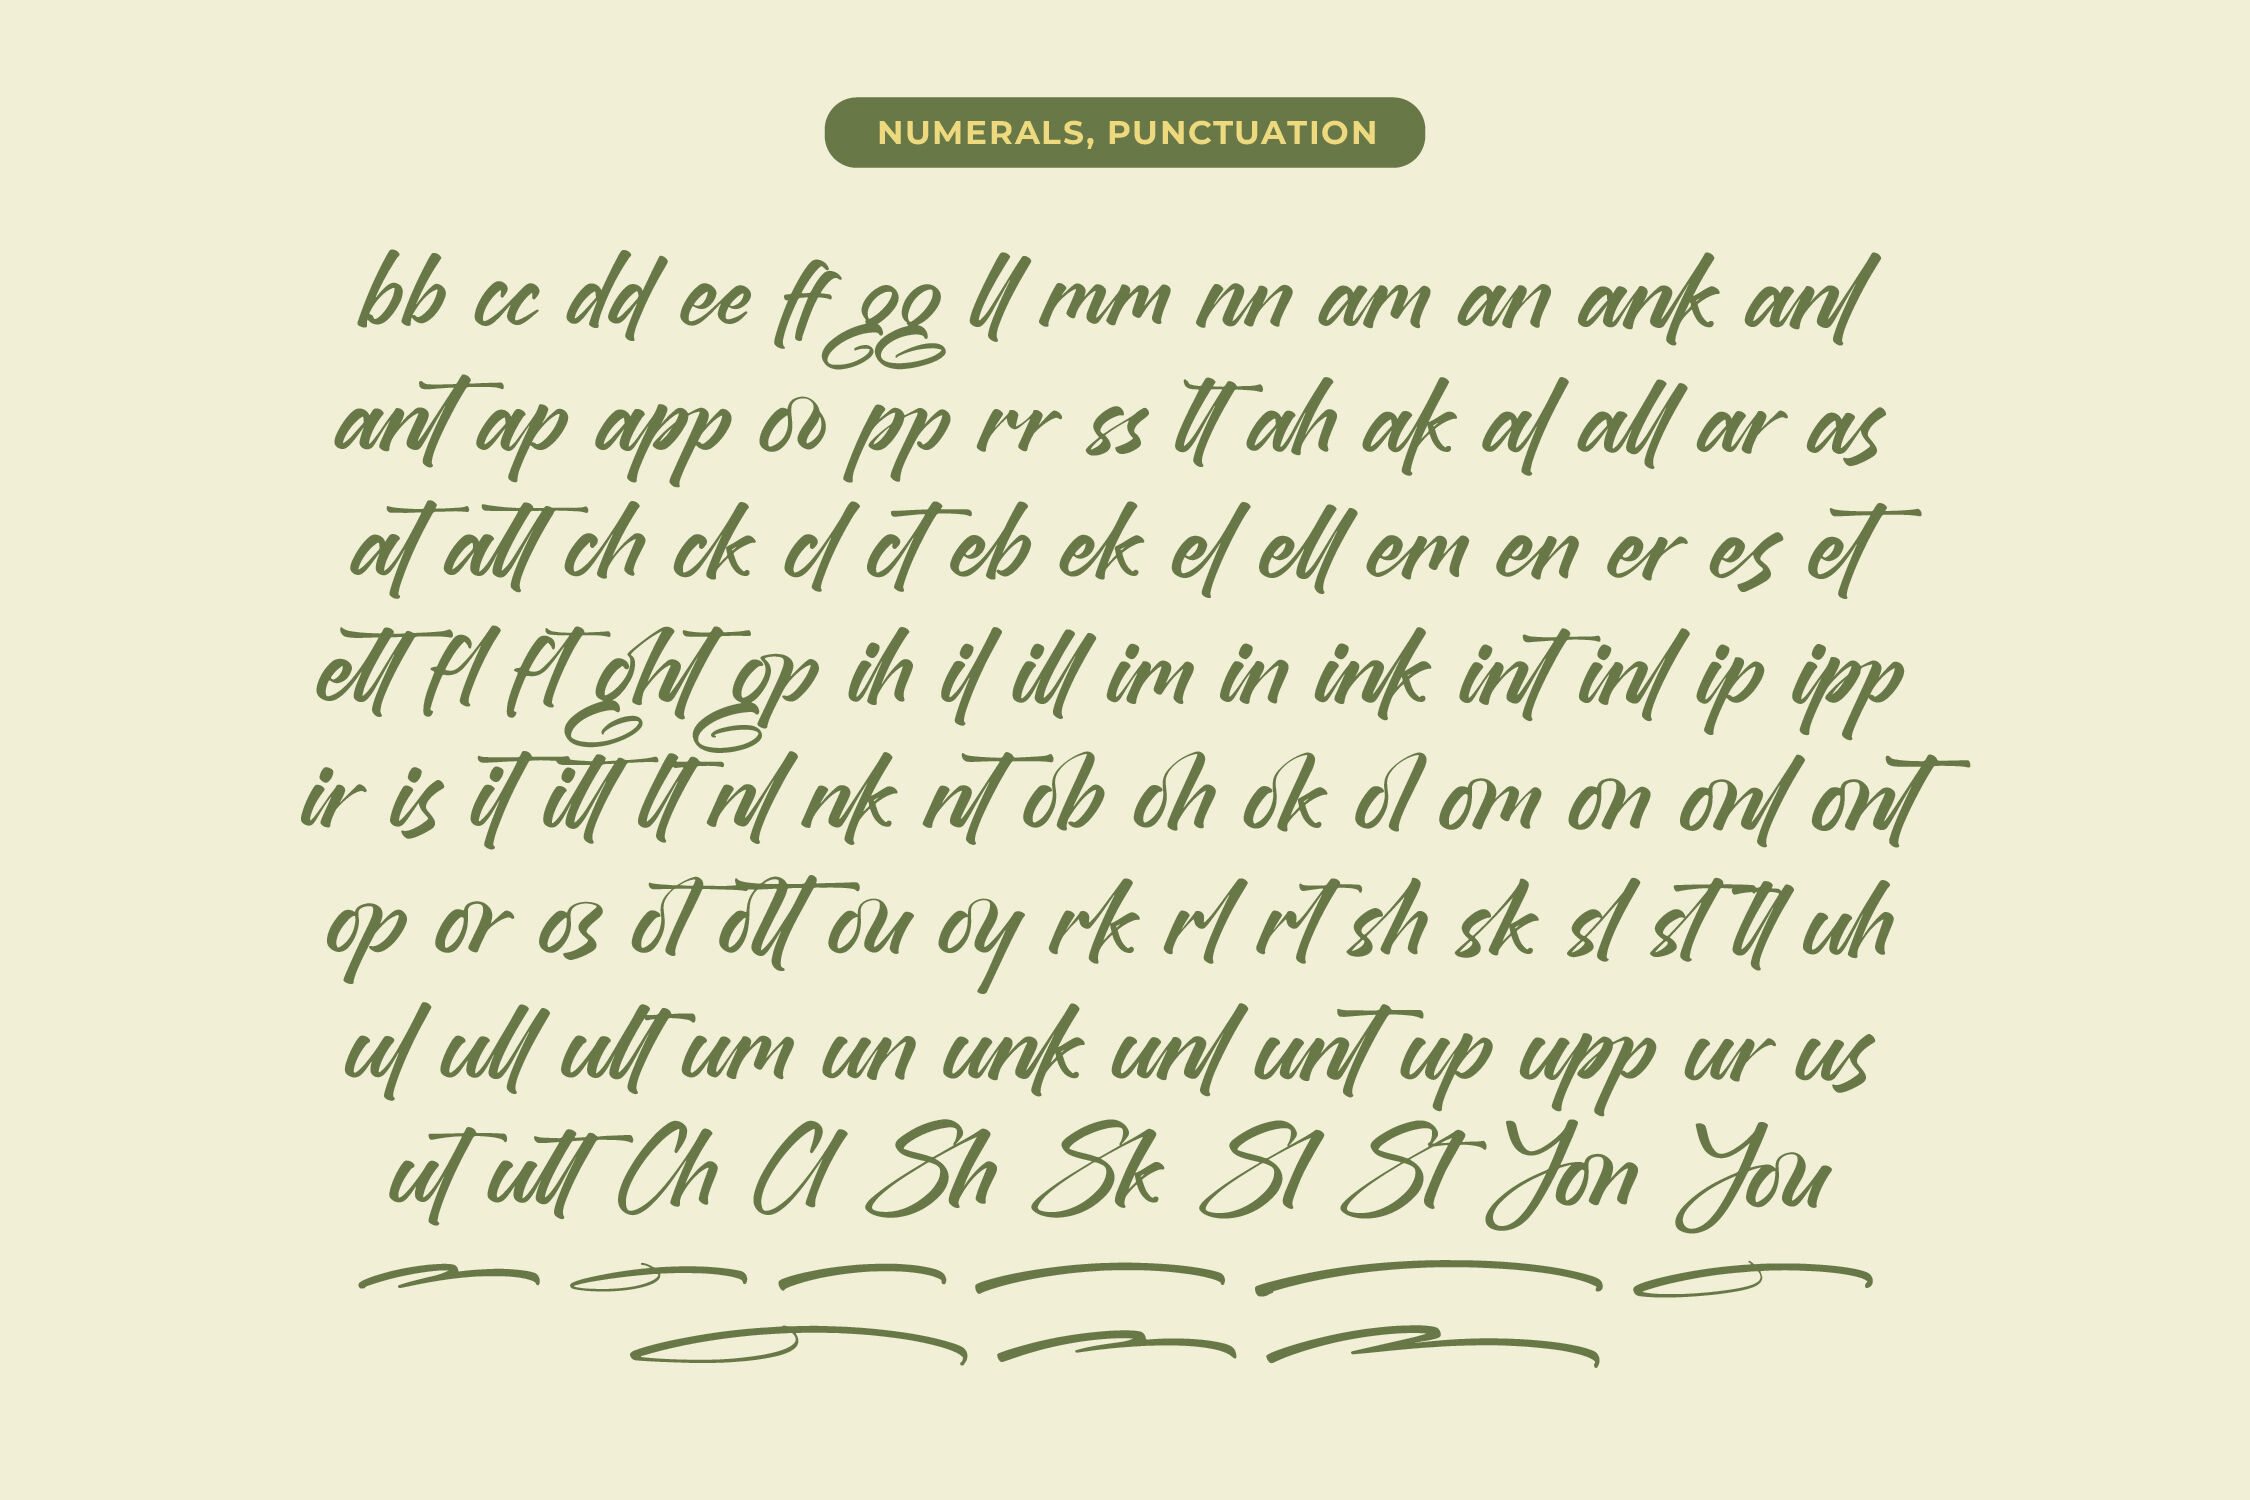 NUMERALS, PUNCTUATION
bb cc dd ee ff gg ll mm nn am an ank anl
ant ap app oo pp rr ss tt ah ak al all ar as
at att ch ck cl ct eb ek el ell em en er es et
ett fl ft ght gp ih il ill im in ink int inl ip ipp
ir is it itt lt nl nk nt ob oh ok ol om on onl ont
op or os ot ott ou oy rk rl rt sh sk sl st tl uh
ul ull ult um un unk unl unt up upp ur us
ut utt Ch Cl Sh Sk Sl St Yon You